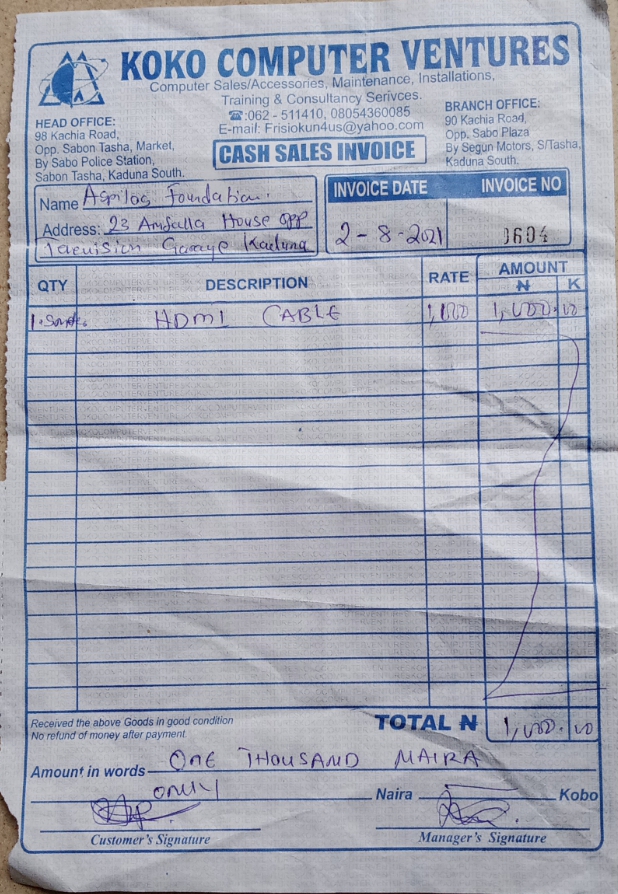 KOKO COMPUTER VENTURES
Computer Sales/Accessories, Maintenance, Installations,
Training & Consultancy Serivces.
☎:062 - 511410, 08054360085
E-mail: Frisiokun4us@yahoo.com
HEAD OFFICE:
98 Kachia Road,
Opp. Sabon Tasha, Market,
By Sabo Police Station,
Sabon Tasha, Kaduna South.
BRANCH OFFICE:
90 Kachia Road,
Opp. Sabo Plaza
By Segun Motors, S/Tasha,
Kaduna South.
CASH SALES INVOICE
Name Aspilos Foundation.
Address: 23 House opp
Garage Kaduna
INVOICE DATE INVOICE NO
2-8-2021 0604
QTY DESCRIPTION RATE AMOUNT
₦ K
HDMI CABLE 1,000 1,000.00
Received the above Goods in good condition
No refund of money after payment.
TOTAL ₦ 1,000.00
Amount in words ONE THOUSAND NAIRA
ONLY Naira Kobo
Customer's Signature Manager's Signature